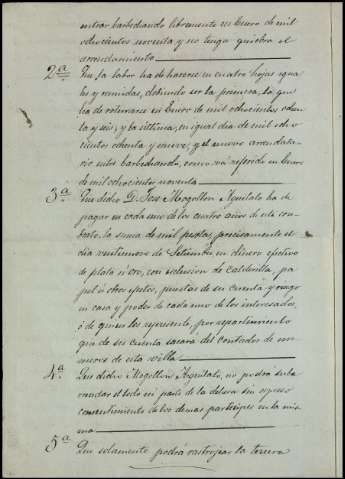 entrar barbechando libremente en Enero de mil
ochocientos noventa y no tenga quiebra el
arrendamiento
2ª Que, la labor ha de hacerse en cuatro hojas igua
les y reunidas, debiendo ser la primera, la que
ha de roturarse en Enero de mil ochocientos ochen
ta y seis, y la última, en igual dia de mil ocho
cientos ochenta y nueve, y el nuevo arrendata
rio entre barbechando, como va referido en Enero
de mil ochocientos noventa
3ª Que dicho D. José Mogollon Aguilato ha de
pagar en cada uno de los cuatro años de este con
trato, la suma de mil pesetas, precisamente el
dia veintinueve de Setiembre, en dinero efectivo
de plata ú oro, con esclusion de calderilla, pa
pel ú otros efectos, puestas de su cuenta y riesgo
en casa y poder de cada uno de los interesados,
ó de quien les represente, por repartimiento
que de su cuenta sacará del contador de
de esta villa
4ª Que dicho Mogollon Aguilato, no podrá suba
rrendar el todo ni parte de la dehesa sin espreso
consentimiento de los demas participes en la mis
ma
5ª Que solamente podrá rastrojar la tercera